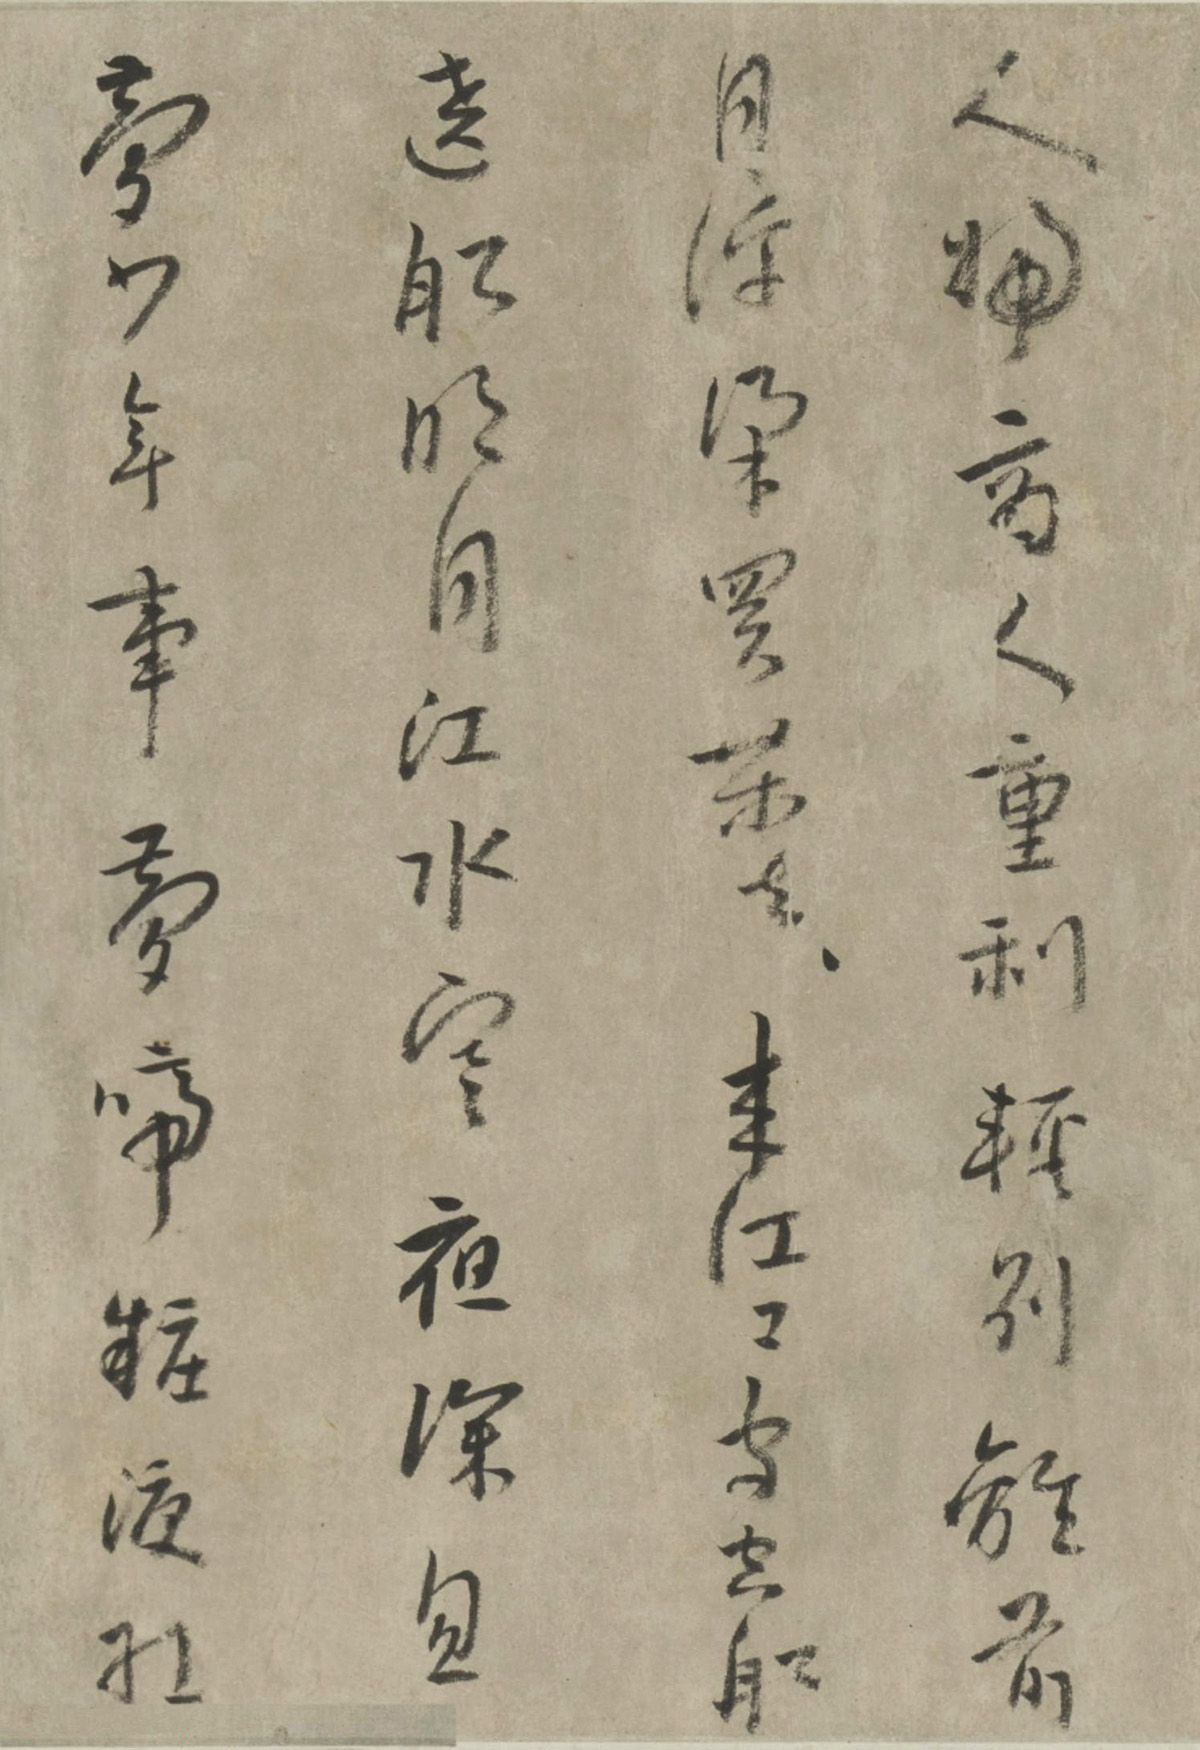 人婦商人重利輕別離前
月浮梁買茶去、來江口守空船
遶船明月江水寒夜深忽
夢少年事夢啼粧淚紅